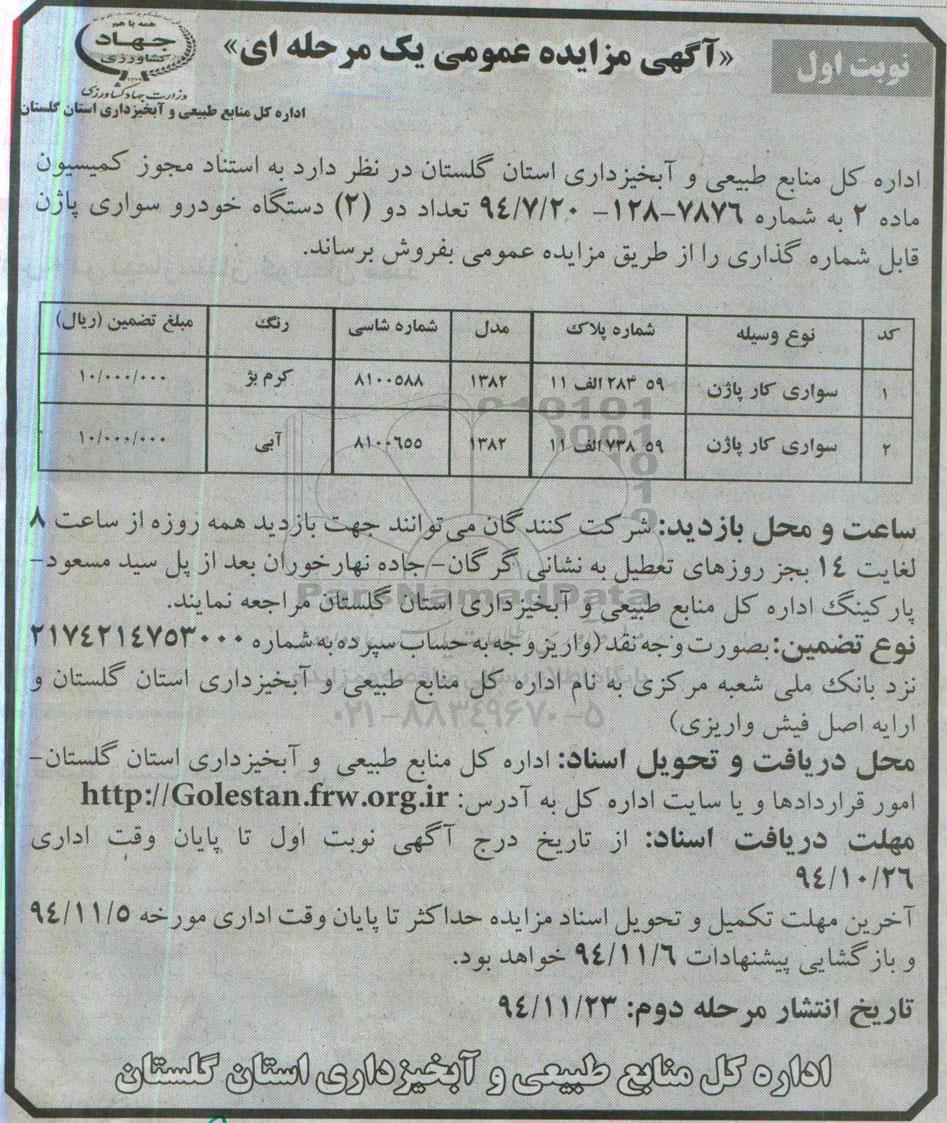 نوبت اول
«آگهی مزایده عمومی یک مرحله ای»
همه با هم
جهاد
کشاورزی
وزارت جهاد کشاورزی
اداره کل منابع طبیعی و آبخیزداری استان گلستان
اداره کل منابع طبیعی و آبخیزداری استان گلستان در نظر دارد به استناد مجوز کمیسیون
ماده ۲ به شماره ۷۸۷۶-۱۲۸- ۹۴/۷/۲۰ تعداد دو (۲) دستگاه خودرو سواری پاژن
قابل شماره گذاری را از طریق مزایده عمومی بفروش برساند.
کد نوع وسیله شماره پلاک مدل شماره شاسی رنگ مبلغ تضمین (ریال)
۱ سواری کار پاژن ۵۹ ۲۸۳ الف ۱۱ ۱۳۸۲ ۸۱۰۰۵۸۸ کرم بژ ۱۰/۰۰۰/۰۰۰
۲ سواری کار پاژن ۵۹ ۷۳۸ الف ۱۱ ۱۳۸۲ ۸۱۰۰۶۵۵ آبی ۱۰/۰۰۰/۰۰۰
ساعت و محل بازدید: شرکت کنندگان می توانند جهت بازدید همه روزه از ساعت ۸
لغایت ۱۴ بجز روزهای تعطیل به نشانی گرگان- جاده نهارخوران بعد از پل سید مسعود-
پارکینگ اداره کل منابع طبیعی و آبخیزداری استان گلستان مراجعه نمایند.
نوع تضمین: بصورت وجه نقد (واریز وجه به حساب سپرده به شماره ۲۱۷۴۲۱۴۷۵۳۰۰۰
نزد بانک ملی شعبه مرکزی به نام اداره کل منابع طبیعی و آبخیزداری استان گلستان و
ارایه اصل فیش واریزی)
محل دریافت و تحویل اسناد: اداره کل منابع طبیعی و آبخیزداری استان گلستان-
امور قراردادها و یا سایت اداره کل به آدرس: http://Golestan.frw.org.ir
مهلت دریافت اسناد: از تاریخ درج آگهی نوبت اول تا پایان وقت اداری
۹۴/۱۰/۲۶
آخرین مهلت تکمیل و تحویل اسناد مزایده حداکثر تا پایان وقت اداری مورخه ۹۴/۱۱/۵
و بازگشایی پیشنهادات ۹۴/۱۱/۶ خواهد بود.
تاریخ انتشار مرحله دوم: ۹۴/۱۱/۲۳
اداره کل منابع طبیعی و آبخیزداری استان گلستان
ParsNamadData
۰۲۱-۸۸۳۴۹۶۷۰-۵